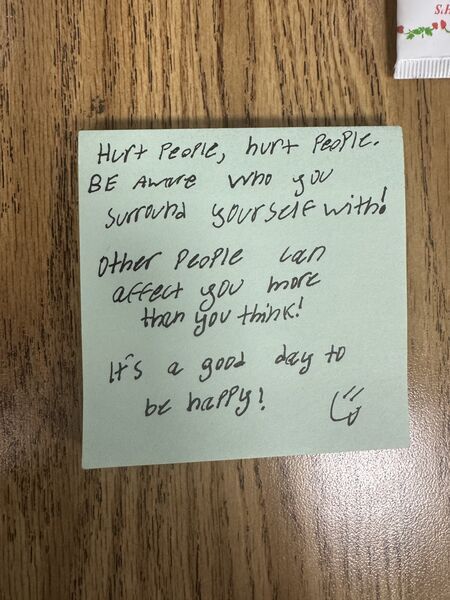 Hurt People, hurt People.
BE AwAre who you
surround yourself with!
Other People can
affect you more
than you think!
It's a good day to
be happy!